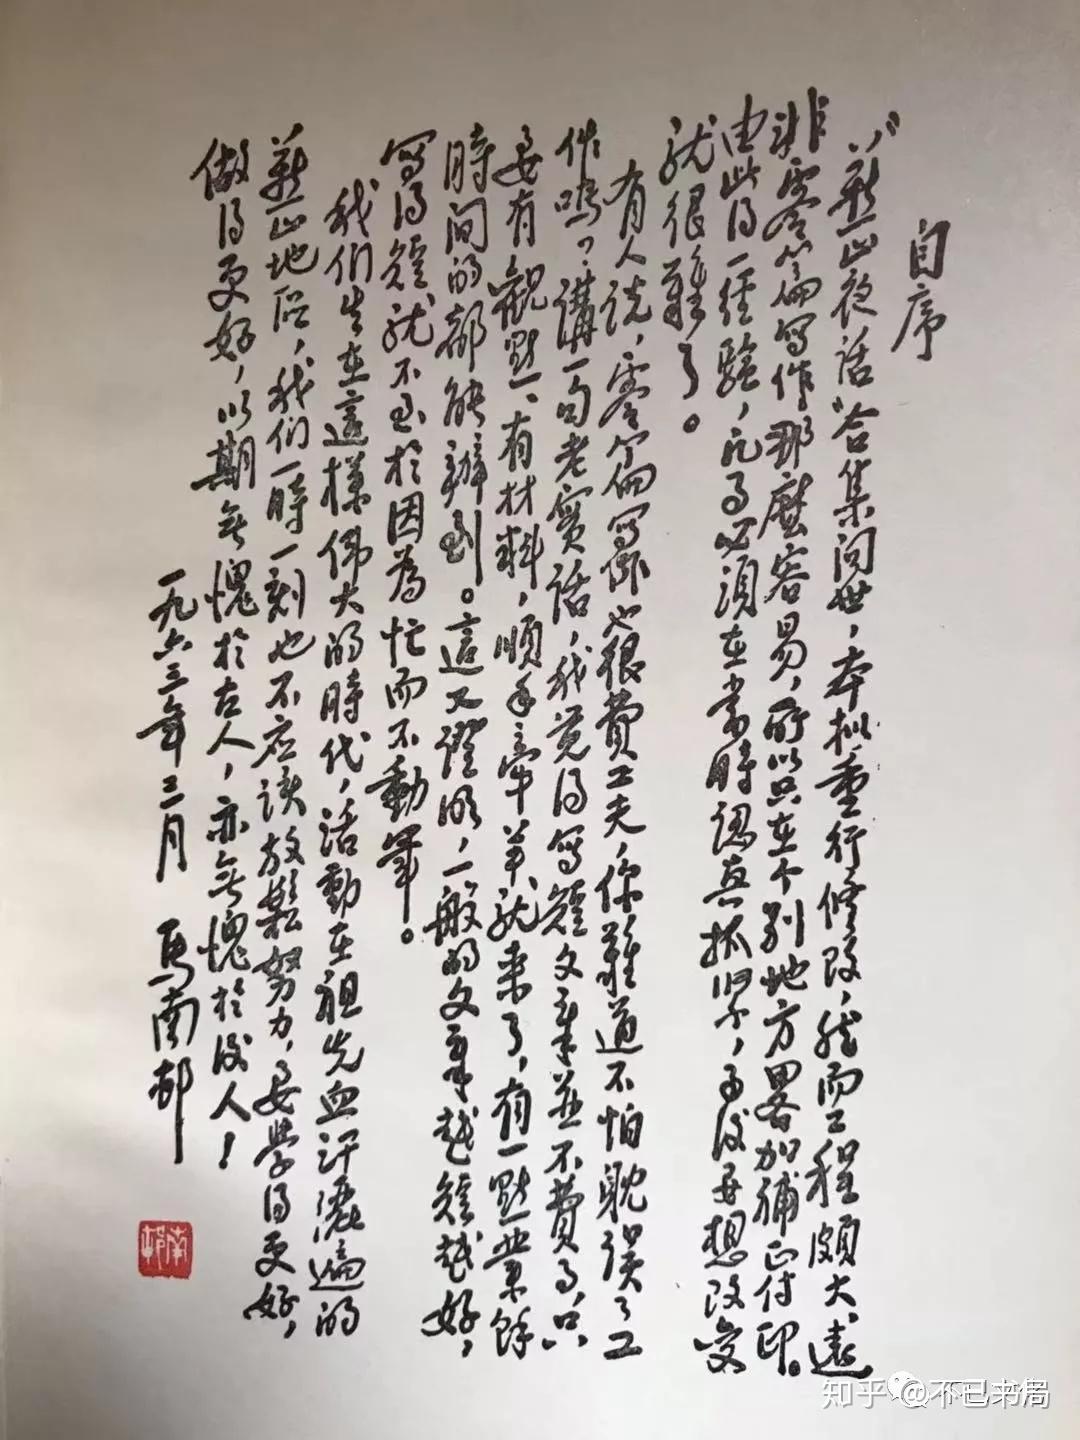 自序
《燕山夜话》合集问世，本拟重行修改，然而工程颇大，远
非零篇写作那麽容易，所以只在个别地方畧加补正付印。
由此得一经验，凡事必须在当时认真抓紧，事后再想改变
就很难了。
有人说，零篇写作也很费工夫，你难道不怕耽误了工
作吗？讲一句老实话，我觉得写短文章并不费事，只
要有观点、有材料，顺手牵羊就来了，有一点业馀
時间的都能辦到。這又證明，一般的文章越短越好，
写得短就不至於因為忙而不動筆。
我们生在這樣伟大的時代，活動在祖先血汗洒遍的
燕山地区，我们一時一刻也不应该放鬆努力，要學得更好，
做得更好，以期無愧於古人，亦無愧於后人！
一九六三年三月 馬南邨
南邨
知乎 @不已书局